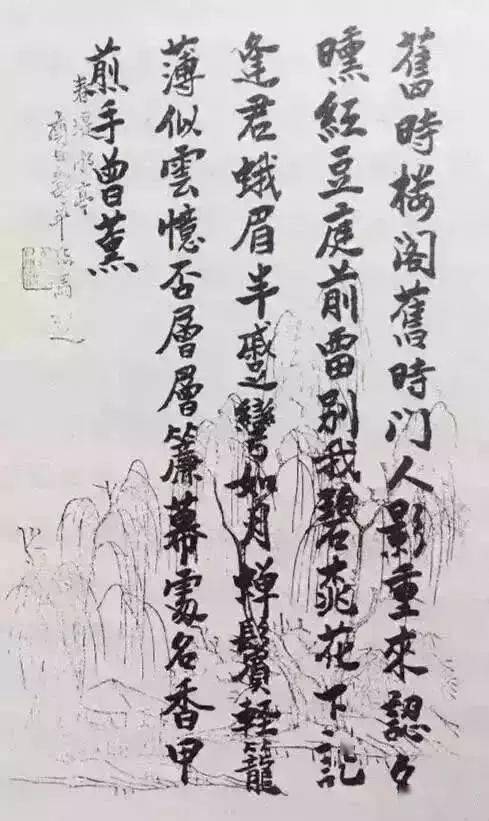 舊時楼阁舊時门人影重來認夕
曛紅豆庭前畱別我碧桃花下記
逢君蛾眉半蹙彎如月蟬鬢輕籠
薄似雲憶否層層簾幕處名香甲
煎手曾薰